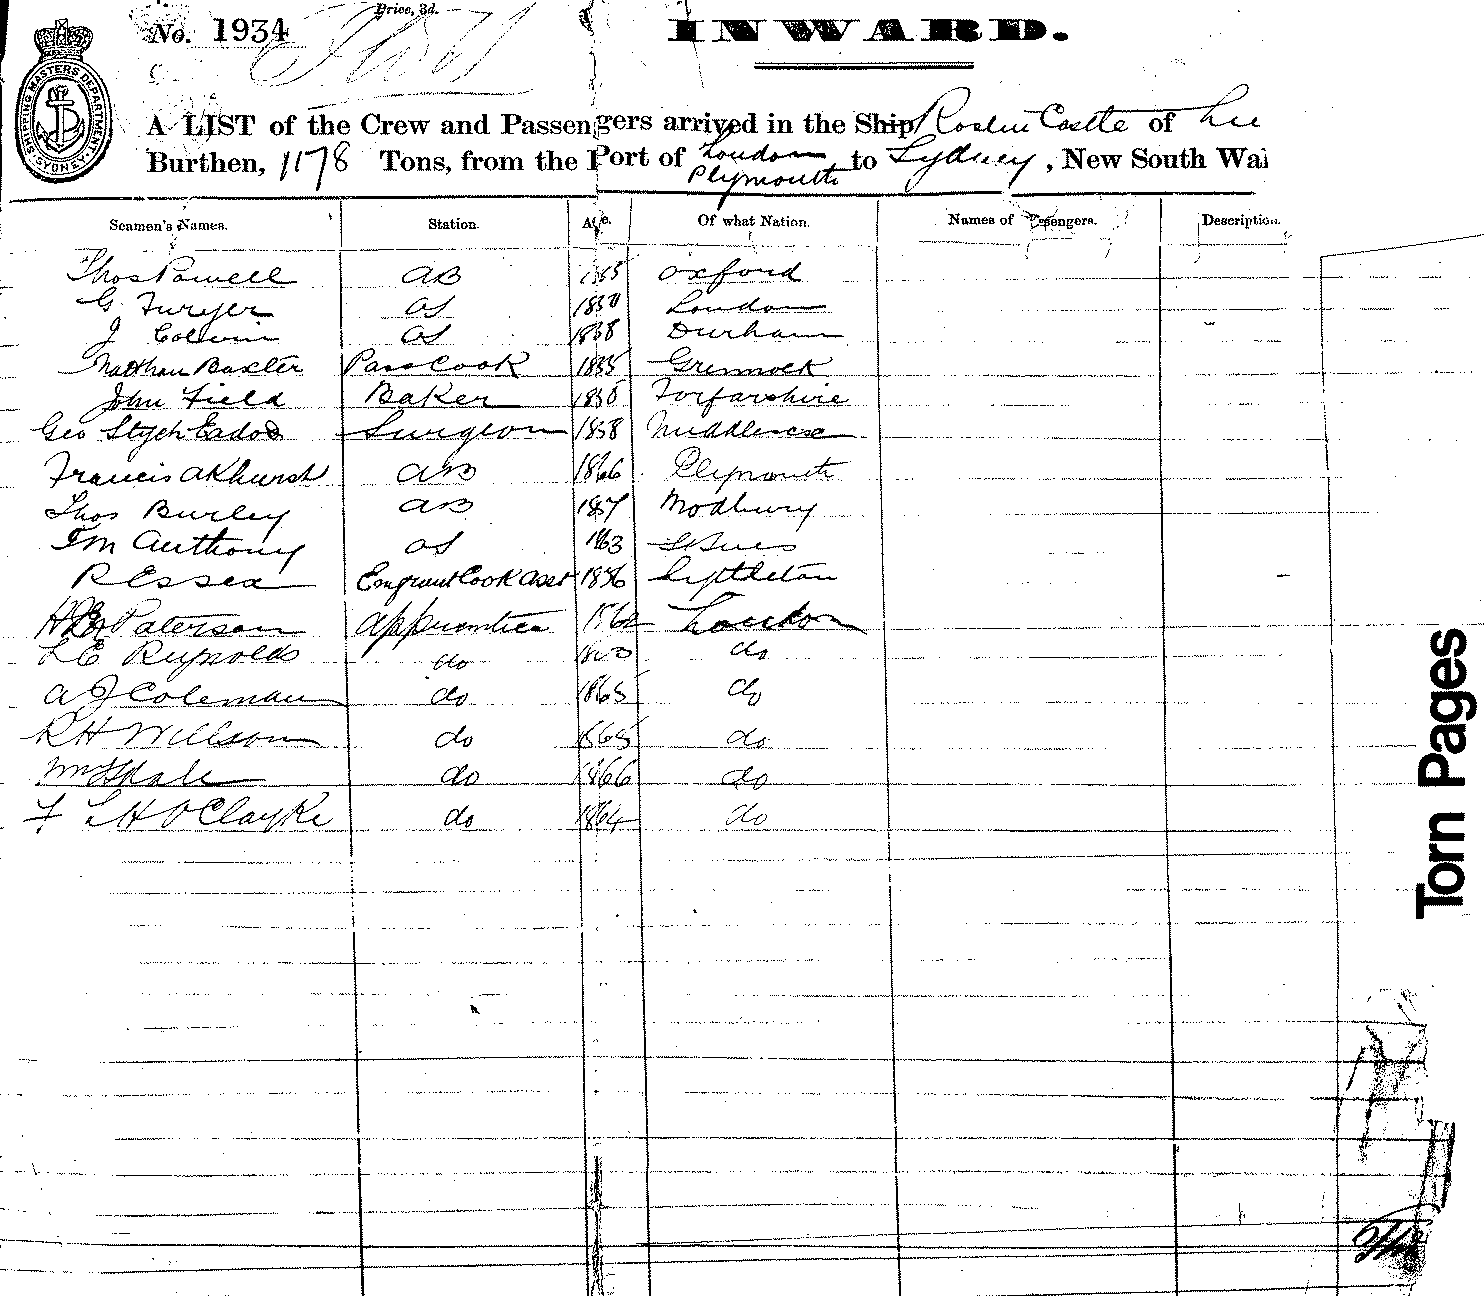 Price, 3d.
No. 1934
INWARD.
SHIPPING MASTERS DEPARTMENT SYDNEY
A LIST of the Crew and Passengers arrived in the Ship Roslin Castle of
Burthen, 1178 Tons, from the Port of London Plymouth to Sydney, New South Wal
Seamen's Names. Station. Age. Of what Nation. Names of Passengers. Description.
Thos Powell AB Oxford
G. Furyer OS London
J Colwin OS 1838 Durham
Nathan Baxter Pass Cook 1835 Greenock
John Field Baker Forfarshire
Geo Stych Surgeon 1838 Middlesex
Francis Akhurst AB 1866 Plymouth
Thos Burley AB 1857 Modbury
Anthony OS 1863 St Ives
R Essex Emgrant Cook Asst 1856 Lyttleton
Paterson Apprentice London
Reynolds do do
A J Coleman do 1865 do
R H Willson do 1865 do
do 1866 do
do 1864 do
Torn Pages